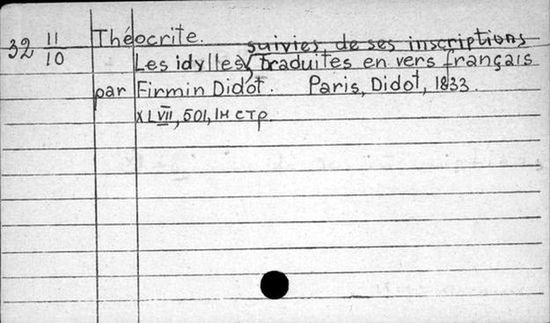 32 11/10 Théocrite.
suivies de ses inscriptions
Les idylles, traduites en vers français
par Firmin Didot. Paris, Didot, 1833.
XLVII, 501, 1н стр.